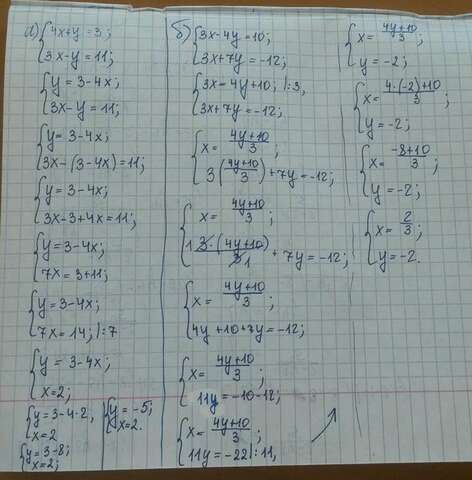 а) { 4x + y = 3;
3x - y = 11;
{ y = 3 - 4x;
3x - y = 11;
{ y = 3 - 4x;
3x - (3 - 4x) = 11;
{ y = 3 - 4x;
3x - 3 + 4x = 11;
{ y = 3 - 4x;
7x = 3 + 11;
{ y = 3 - 4x;
7x = 14; | : 7
{ y = 3 - 4x;
x = 2;
{ y = 3 - 4 · 2,
x = 2
{ y = 3 - 8;
x = 2;
{ y = -5;
x = 2.
б) { 3x - 4y = 10;
3x + 7y = -12;
{ 3x = 4y + 10; | : 3,
3x + 7y = -12;
{ x = (4y + 10)/3;
3((4y + 10)/3) + 7y = -12;
{ x = (4y + 10)/3;
1 3 · (4y + 10)/3 1 + 7y = -12;
{ x = (4y + 10)/3;
4y + 10 + 7y = -12;
{ x = (4y + 10)/3;
11y = -10 - 12;
{ x = (4y + 10)/3;
11y = -22 | : 11,
{ x = (4y + 10)/3;
y = -2;
{ x = (4 · (-2) + 10)/3
y = -2;
{ x = (-8 + 10)/3
y = -2;
{ x = 2/3;
y = -2.